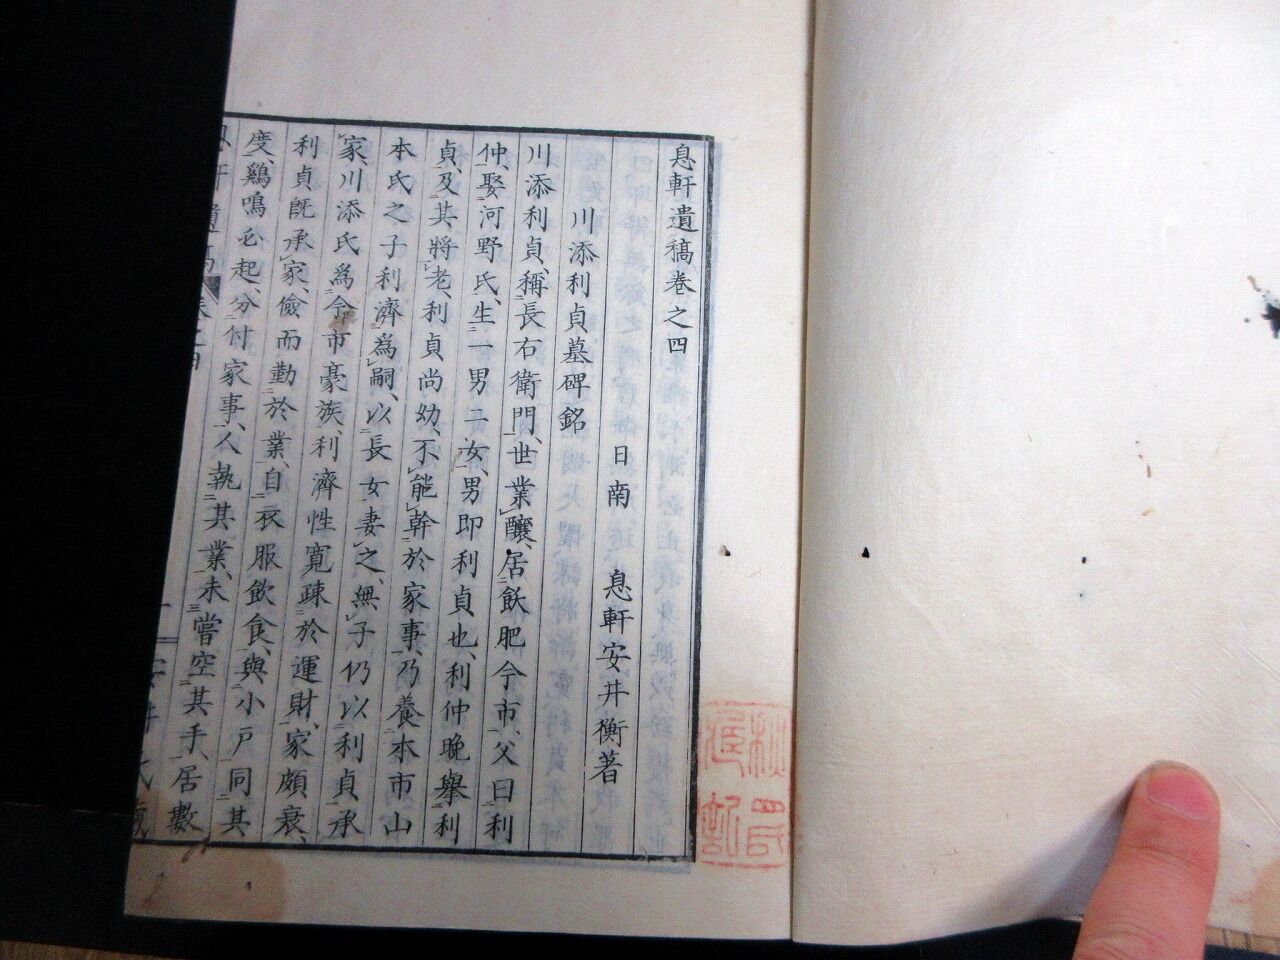 息軒遺稿卷之四
日南　息軒安井衡著
川添利貞墓碑銘
川添利貞、稱長右衛門、世業釀、居飫肥今市、父曰利
仲、娶河野氏、生一男二女、男即利貞也、利仲晚舉利
貞、及其將老、利貞尚幼、不能幹於家事、乃養本市山
本氏之子利濟爲嗣、以長女妻之、無子仍以利貞承
家、川添氏爲今市豪族、利濟性寬疎於運財、家頗衰、
利貞既承家、儉而勤於業、自衣服飲食、與小戶同其
度、鷄鳴必起、分付家事、人執其業、未嘗空其手、居數